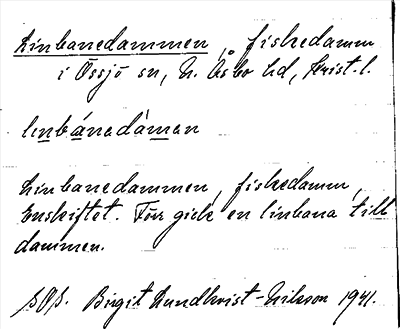 Linbanedammen, fiskedamm
i Össjö sn, N. Åsbo hd, Krist. l.
linbánedàmen
Linbanedammen, fiskedamm,
Enskiftet. Förr gick en linbana till
dammen.
Birgit Lundkvist-Nilsson 1941.